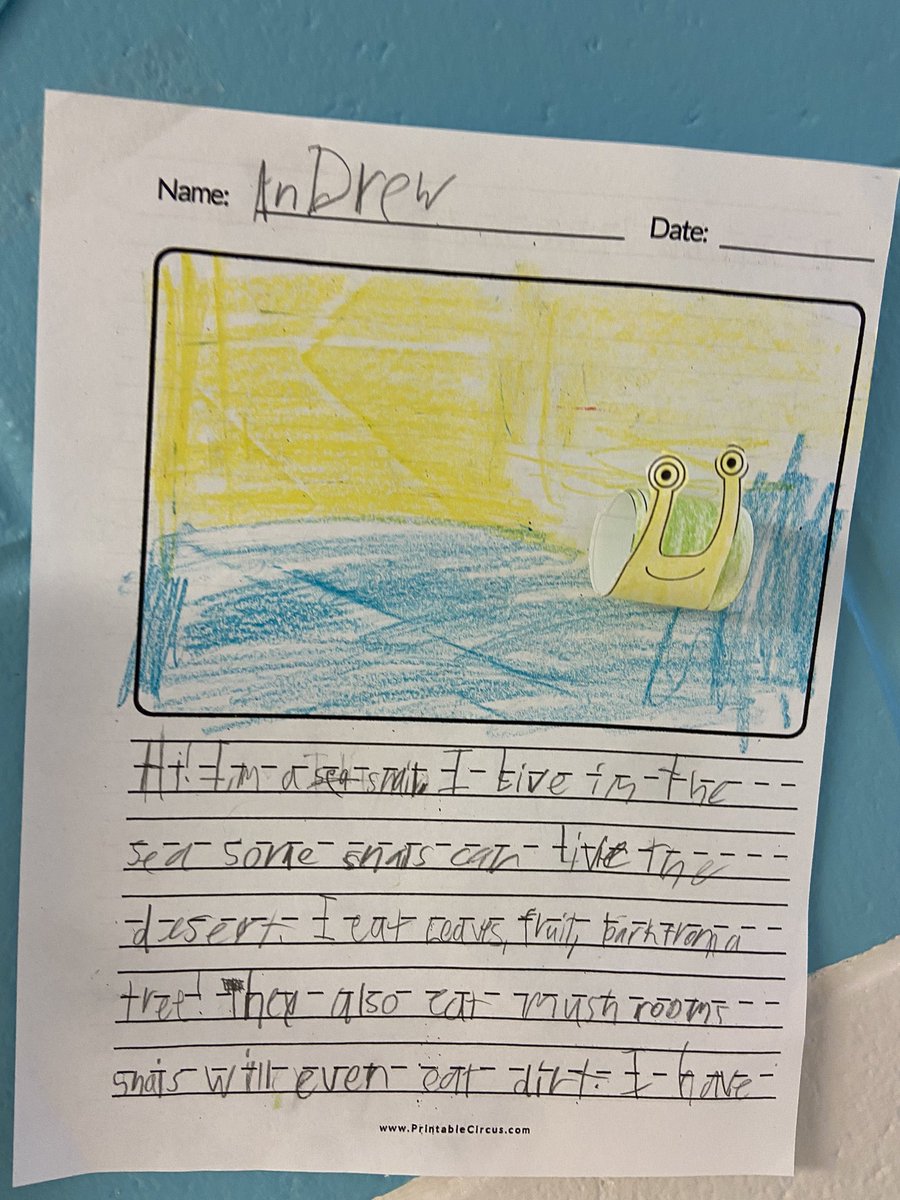 Name: AnDrew
Date:
Hi! I'm a sea snail. I live in the
sea some snals can live the
desert. I eat leaves, fruit, bark from a
tree! They also eat mush rooms
snals will even eat dirt. I have
www.PrintableCircus.com